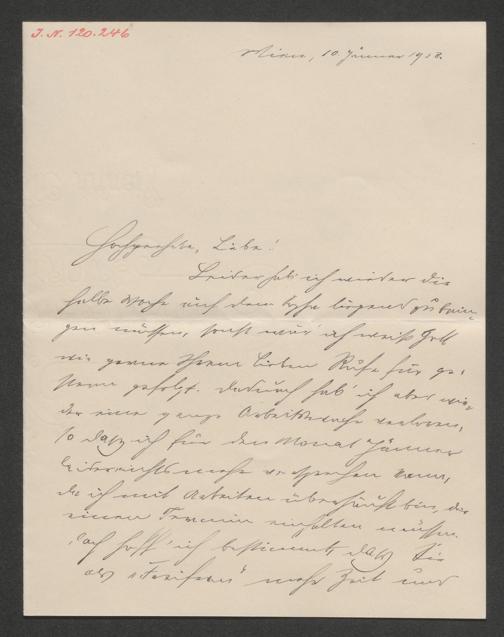 J. N. 120.246
Wien, 10. Jänner 1918.
Hochverehrte, Liebe!
Leider hab ich wieder die
halbe Woche auf dem Sofa liegend zubrin-
gen müssen, sonst wär' ich weiß Gott
wie gerne Ihrem lieben Rufe für ge-
stern gefolgt. Dadurch hab' ich aber wie-
der eine ganze Arbeitswoche verloren,
so daß ich für den Monat Jänner
leider nichts mehr versprechen kann,
da ich mit Arbeiten überhäuft bin, die
einen Termin einhalten müssen.
Doch hoff' ich bestimmt, daß Sie
als "Freifrau" mehr Zeit und